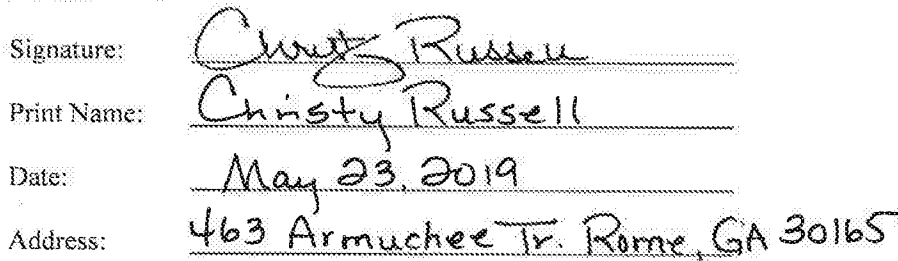 Signature: Christy Russell
Print Name: Christy Russell
Date: May 23, 2019
Address: 463 Armuchee Tr. Rome, GA 30165